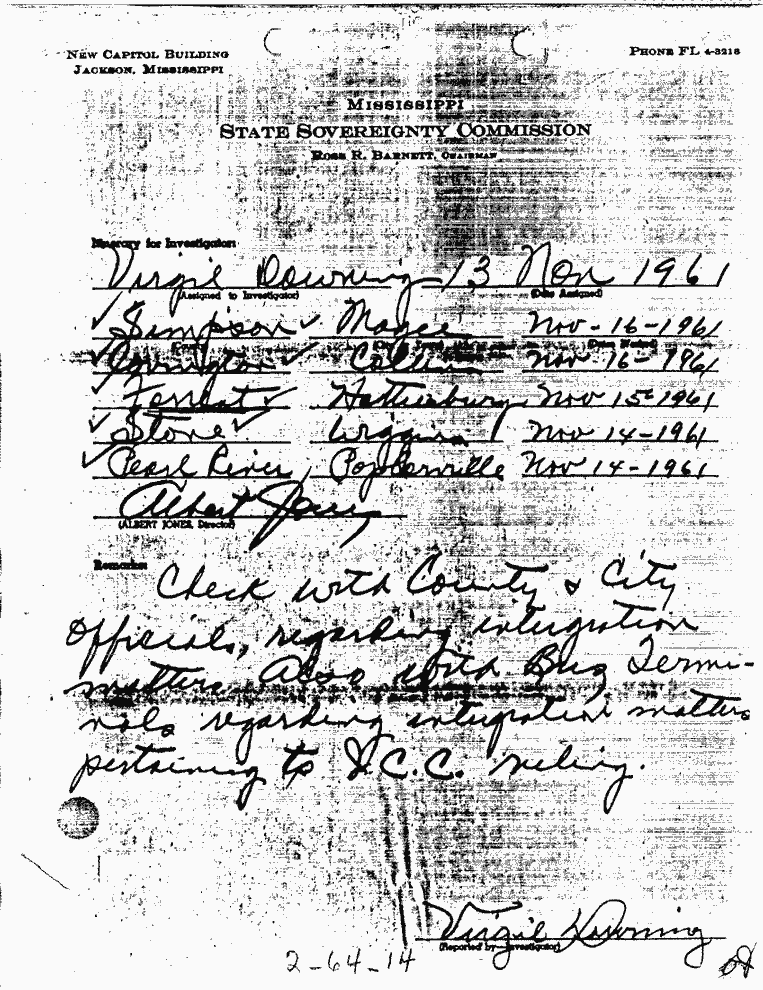 NEW CAPITOL BUILDING PHONE FL 4-3218
JACKSON, MISSISSIPPI
MISSISSIPPI
STATE SOVEREIGNTY COMMISSION
ROSS R. BARNETT, CHAIRMAN
Itinerary for Investigator:
Virgil Downing 13 Nov 1961
(Assigned to Investigator) (Date Assigned)
✓ Simpson ✓ Magee Nov-16-1961
(Dates Worked)
✓ Covington ✓ Collins Nov-16-1961
✓ Forrest ✓ Hattiesburg Nov 15-1961
✓ Stone ✓ Wiggins Nov 14-1961
✓ Pearl River, Poplarville Nov 14-1961
Albert Jones
(ALBERT JONES, Director)
Remarks: Check with County & City
Officials, regarding intergration
matters Also with Bus Termi-
nals regarding intergration matters
pertaining to I.C.C. ruling.
Virgil Downing
(Reported by-Investigator)
2-64-14